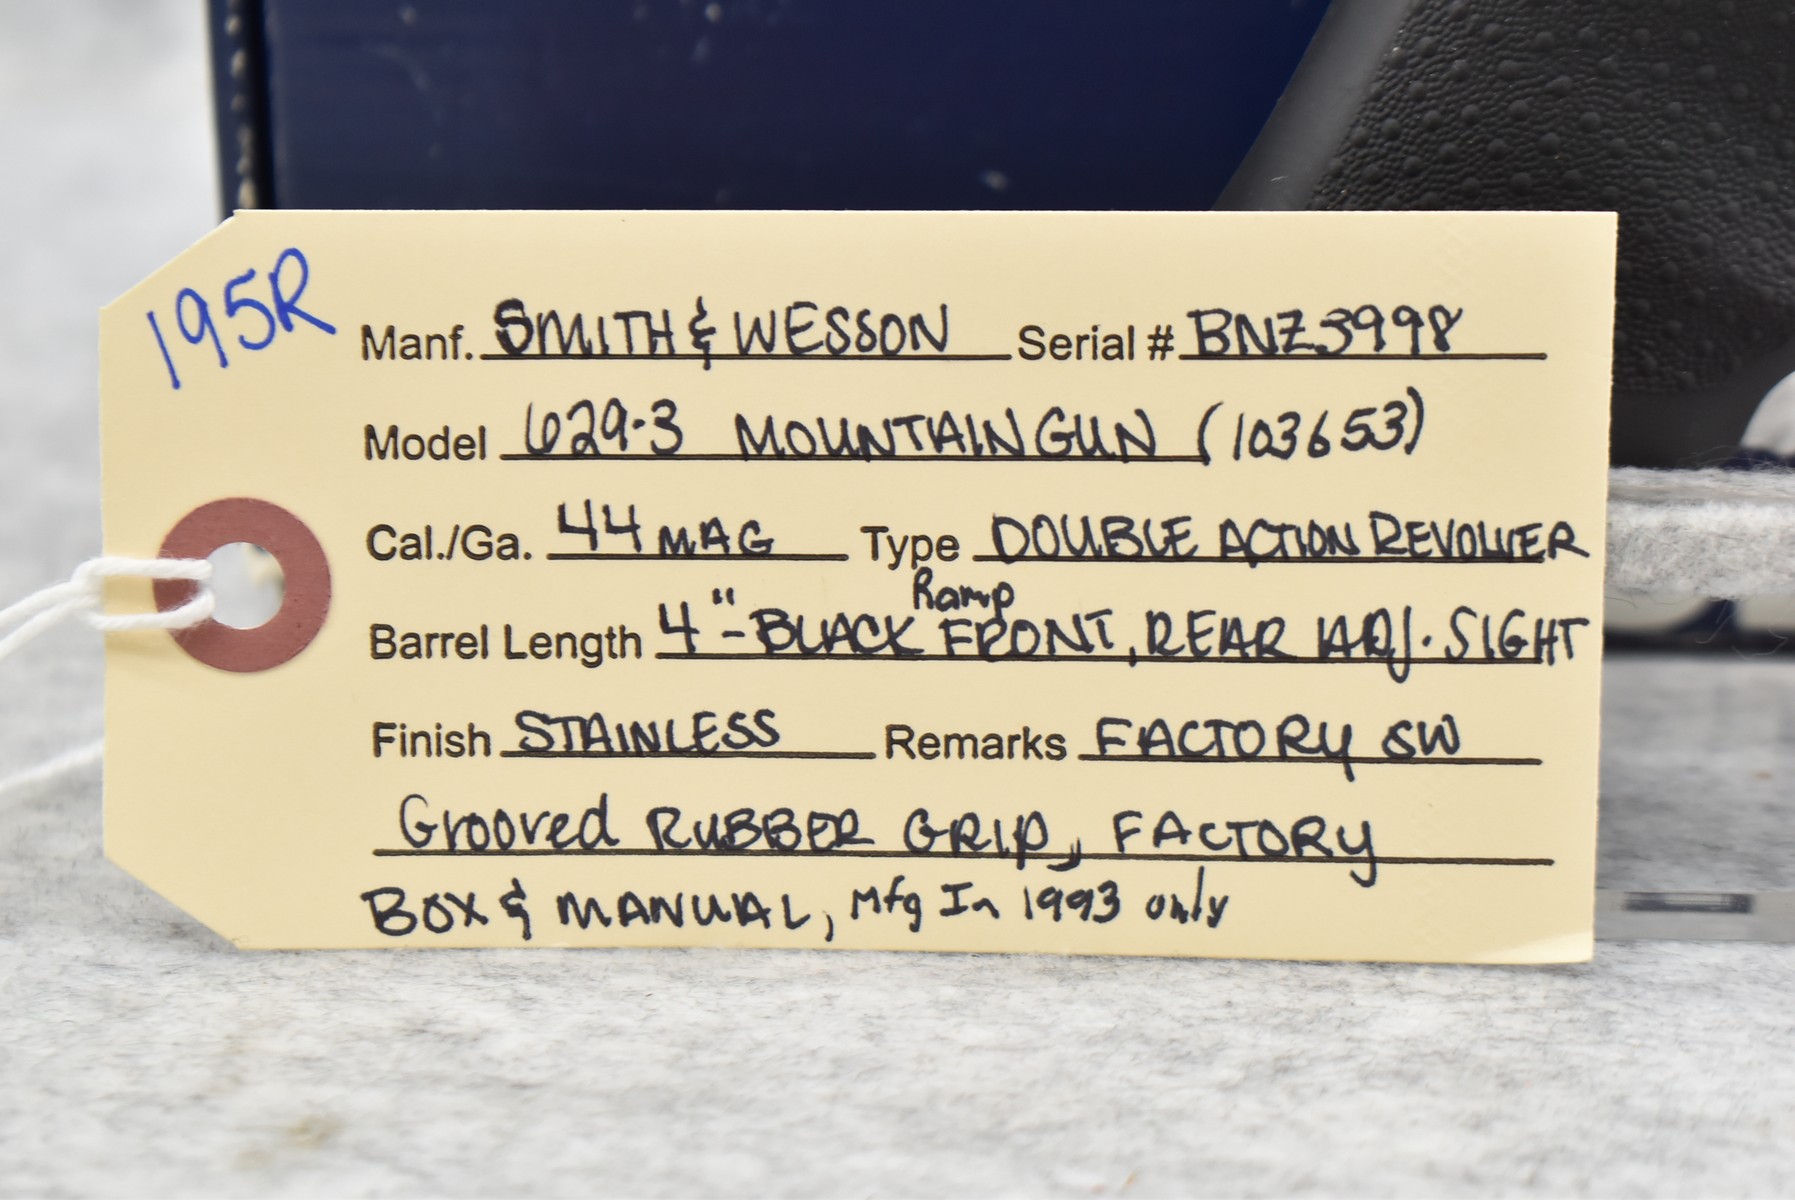 195R
Manf. SMITH & WESSON Serial # BNZ3998
Model 629-3 MOUNTAIN GUN (103653)
Cal./Ga. 44 MAG Type DOUBLE ACTION REVOLVER
Ramp
Barrel Length 4" - BLACK FRONT, REAR ADJ. SIGHT
Finish STAINLESS Remarks FACTORY SW
Grooved RUBBER GRIP, FACTORY
BOX & MANUAL, Mfg In 1993 only